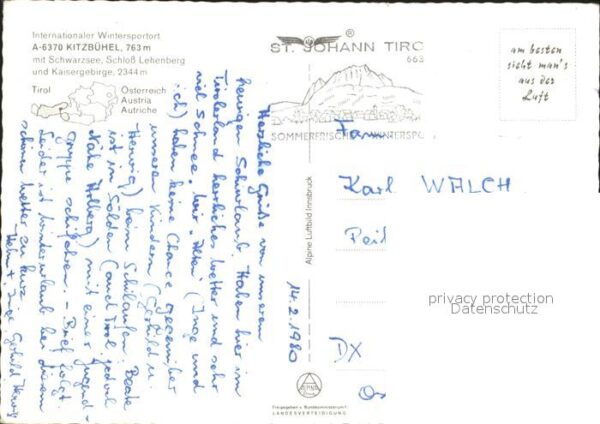 Internationaler Wintersportort
A-6370 KITZBÜHEL, 763 m
mit Schwarzsee, Schloß Lebenberg
und Kaisergebirge, 2344 m
Tirol
Österreich
Austria
Autriche
ST. JOHANN TIRO
663
SOMMERFRISCHE WINTERSPO
am besten
sieht man's
aus der
Luft
Herzliche Grüße von unserem
heurigen Schiurlaub. Haben hier im
Tirolerland herrliches Wetter und sehr
viel Schnee. Wir "Alten" (Inge und
ich) haben keine Chance gegenüber
unseren Kindern (Gerhild u.
Herwig) beim Schilaufen. Beate
ist in Sölden (auch Tirol, jedoch
Nähe Arlberg) mit einer Jugend-
gruppe schifahren. - Brief folgt.
Leider ist Winterurlaub bei diesem
schönen Wetter zu kurz
Inge Gerhild Herwig
14.2.1980
Alpine Luftbild Innsbruck
Fam
Karl WALCH
DX
privacy protection
Datenschutz
Freigegeben v. Bundesministerium f.
LANDESVERTEIDIGUNG